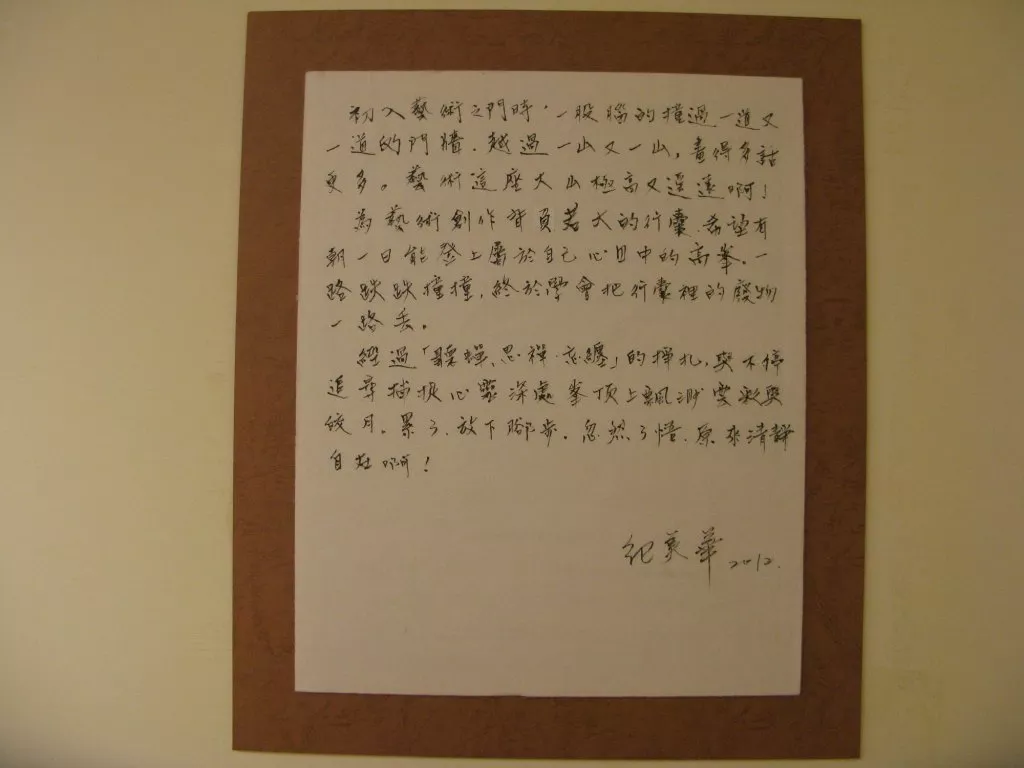 初入藝術之門時,一股腦的撞過一道又
一道的門牆.越過一山又一山,畫得多話
更多。藝術這座大山極高又遙遠啊!
為藝術創作背負若大的行囊.希望有
朝一日能登上屬於自己心目中的高峯。一
路跌跌撞撞,終於學會把行囊裡的廢物
一路丟。
經過「聽蟬、思禪、忘纏」的掙扎,與不停
追尋 心靈深處峯頂上飄渺雲彩與
皎月。累了.放下腳步.忽然了悟.原來清靜
自在啊!
紀英華 2012.